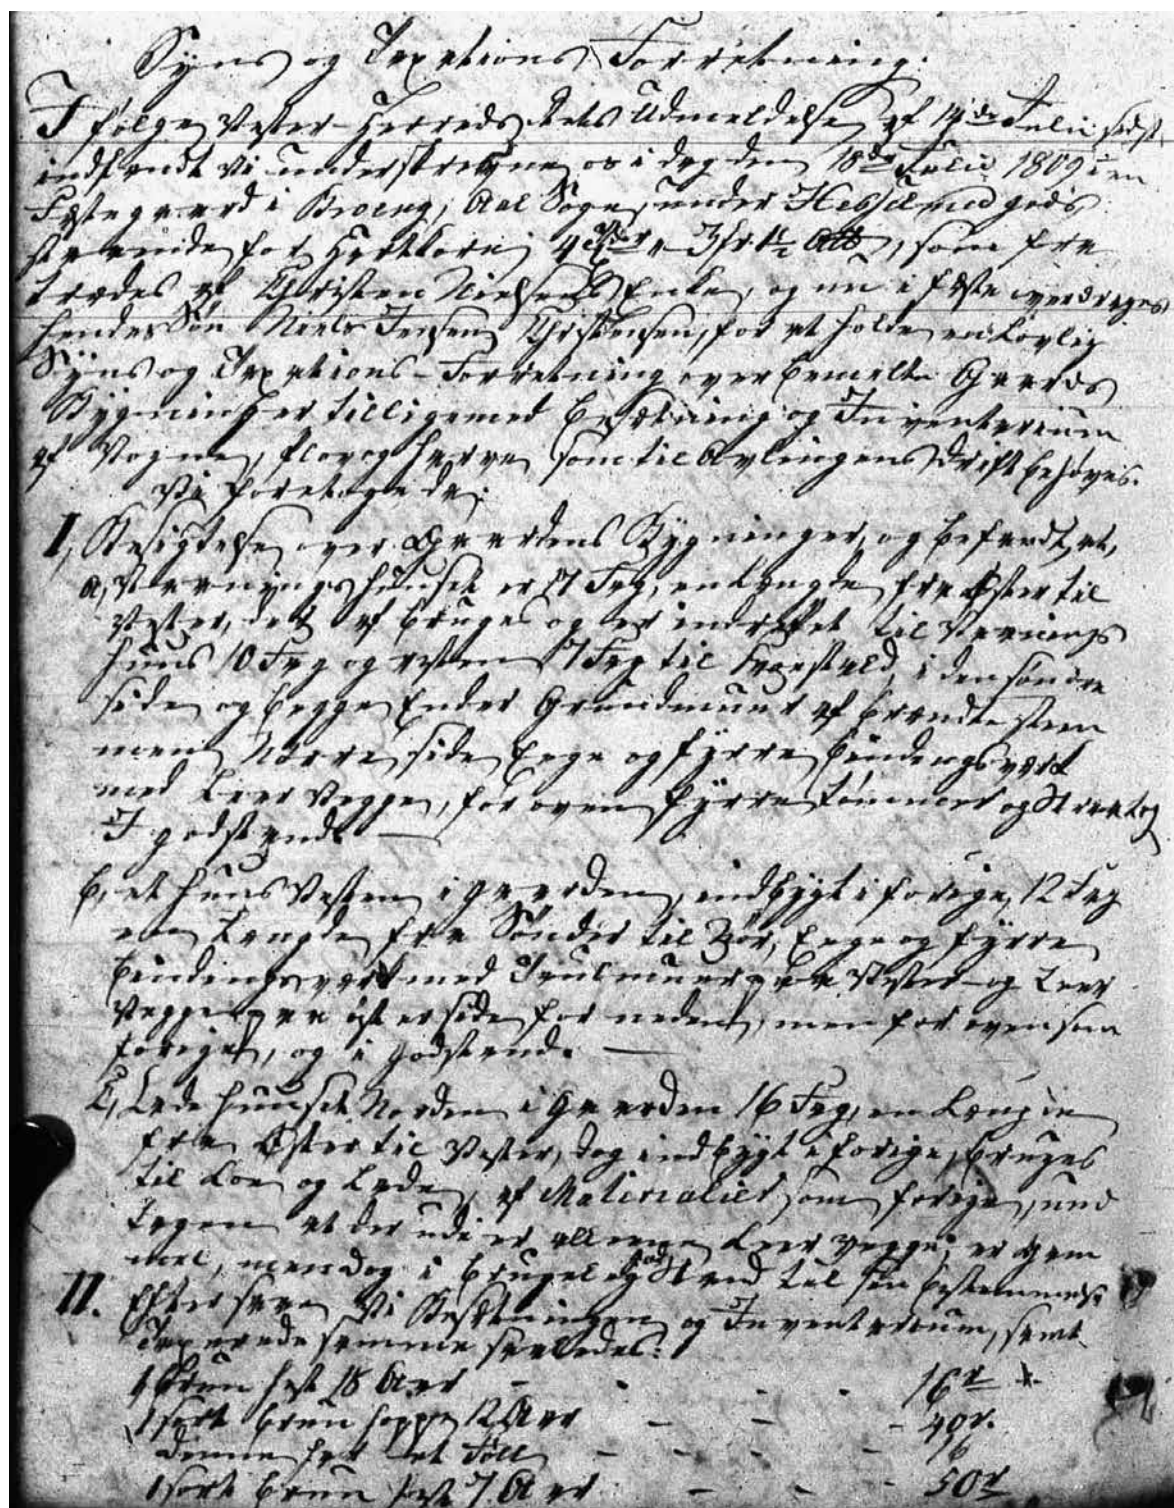 Syns og Taxations Forretning.
Ifølge Vester-Herreds Rets Udmeldelse af 14de Julii sidst,
indfandt vi underskrevne os i dag den 18de Julii 1809 i en
Fæstegaard i Broeng, Aal Sogn, under Hesselmed gods
staaende for Hartkorn 4 Tdr " 3 fr. 1½ Alb, som fra
trædes af Christen Nielsens Enke, og nu i fæste overdrages
hendes Søn Niels Jensen Christensen, for at holde en Lovlig
Syns og Taxations-Forretning over bemelte Gaards
Bygninger tilligemed Besætning og Inventarium
af Vogne, plov og harve, som til Avlingens Drift behøves.
Vi foretoge da:
I, Besigtelse over Gaardens Bygninger, og befandt, at,
a, Vaaningshuuset er 17 Fag, en Længde fra Øster til
Vester, det af bruges og er indrettet til Vaanings
huus 10 Fag og resten 7 Fag til Qvægstald, i den søndre
side og begge Ender Grundmuur af brændte steen
men Nørre side Eege og fyrre bindingsverk
med Leer Vegge, for oven fyrre tømmer og Straatag
I godstand.
b, et huus Vesten i gaarden, indbygt i forige, 12 Fag
een Længde fra Sønder til Nør, Eege og fyrre
bindingsverk med Tavlmuur paa Vester- og Leer
Vegge paa øster side for neden, men for oven som
forige, og i godstand.
C, Lade huuset Norden i gaarden 16 Fag, en Længde
fra Øster til Vester, dog indbygt i forige, bruges
til Loe og Lade, af Materialier som forige, und
tagen at der udi er allene Leer vegge, er gam
mel, men dog i brugelig god Stand til sin bestemmelse
II. Efter saae vi Besætningen og Inventarium, samt
Taxerede samme saaledes:
1 Brun hest 18 Aar - - - 16 r
1 sort brun hoppe 12 Aar - - - 40 r.
denne har et Føll - - - - 6
1 sort brun hest 7 Aar - - - 50 r